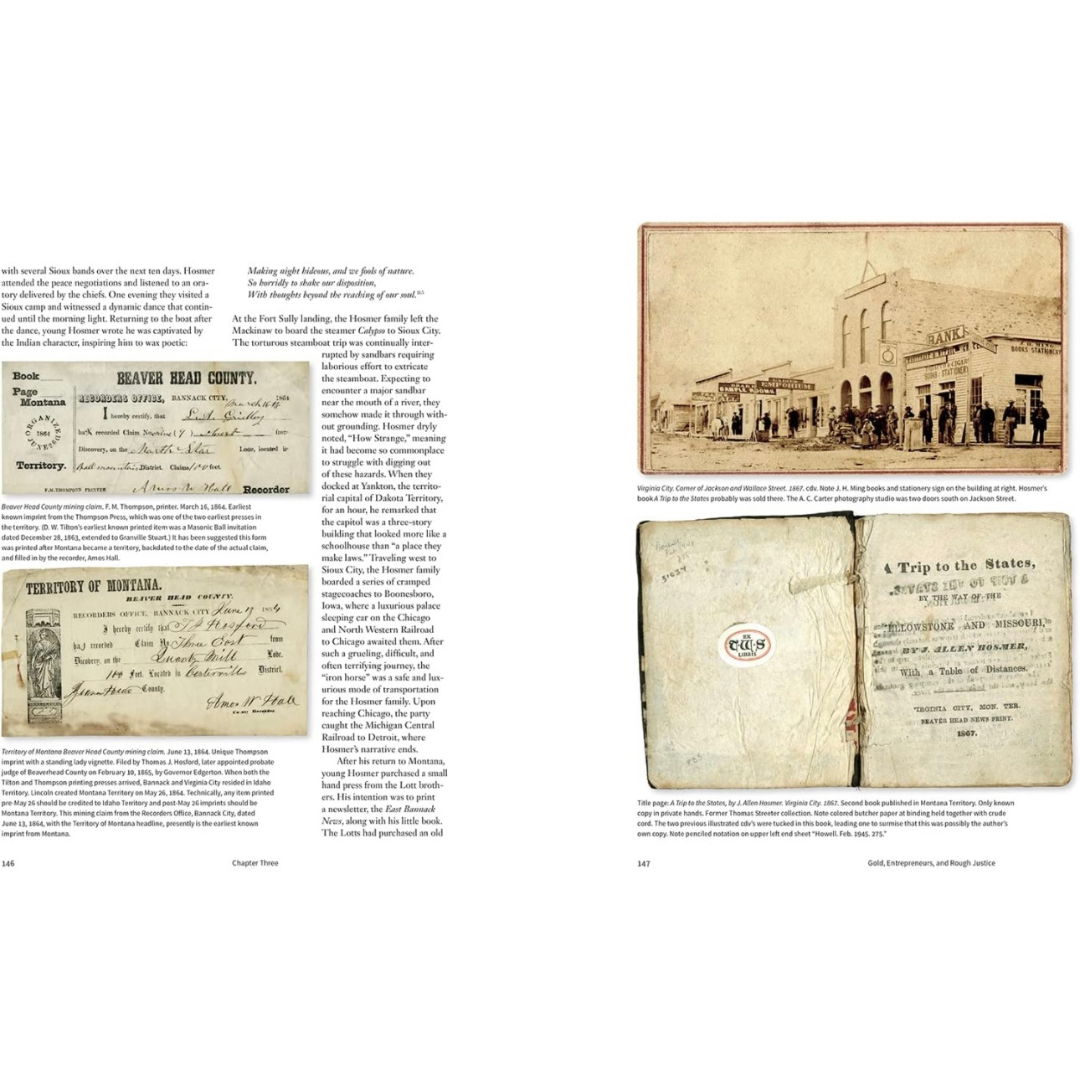 with several Sioux bands over the next ten days. Hosmer
attended the peace negotiations and listened to an ora-
tory delivered by the chiefs. One evening they visited a
Sioux camp and witnessed a dynamic dance that contin-
ued until the morning light. Returning to the boat after
the dance, young Hosmer wrote he was captivated by
the Indian character, inspiring him to wax poetic:
Book
Page
Montana
ORGANIZED
1864
JUNE 28
Territory.
BEAVER HEAD COUNTY.
RECORDERS OFFICE, BANNACK CITY, March 16 1864
I hereby certify, that
has recorded Claim
Discovery, on the North Star
District. Claim 100 feet.
F.M. THOMPSON PRINTER
Amos W Hall Recorder
Beaver Head County mining claim. F. M. Thompson, printer. March 16, 1864. Earliest
known imprint from the Thompson Press, which was one of the two earliest presses in
the territory. (D. W. Tilton's earliest known printed item was a Masonic Ball invitation
dated December 28, 1863, extended to Granville Stuart.) It has been suggested this form
was printed after Montana became a territory, backdated to the date of the actual claim,
and filled in by the recorder, Amos Hall.
TERRITORY OF MONTANA.
BEAVER HEAD COUNTY.
RECORDERS OFFICE, BANNACK CITY June 13 1864
I hereby certify that T J Hosford
has recorded Claim No Three East from
Dicovery, on the Quartz Hill Lode.
100 Feet. Located in Centerville District.
County.
Amos W Hall
County Recorder
Territory of Montana Beaver Head County mining claim. June 13, 1864. Unique Thompson
imprint with a standing lady vignette. Filed by Thomas J. Hosford, later appointed probate
judge of Beaverhead County on February 10, 1865, by Governor Edgerton. When both the
Tilton and Thompson printing presses arrived, Bannack and Virginia City resided in Idaho
Territory. Lincoln created Montana Territory on May 26, 1864. Technically, any item printed
pre-May 26 should be credited to Idaho Territory and post-May 26 imprints should be
Montana Territory. This mining claim from the Recorders Office, Bannack City, dated
June 13, 1864, with the Territory of Montana headline, presently is the earliest known
imprint from Montana.
Making night hideous, and we fools of nature.
So horridly to shake our disposition,
With thoughts beyond the reaching of our soul.
At the Fort Sully landing, the Hosmer family left the
Mackinaw to board the steamer Calypso to Sioux City.
The torturous steamboat trip was continually inter-
rupted by sandbars requiring
laborious effort to extricate
the steamboat. Expecting to
encounter a major sandbar
near the mouth of a river, they
somehow made it through with-
out grounding. Hosmer dryly
noted, "How Strange," meaning
it had become so commonplace
to struggle with digging out
of these hazards. When they
docked at Yankton, the territo-
rial capital of Dakota Territory,
for an hour, he remarked that
the capitol was a three-story
building that looked more like a
schoolhouse than "a place they
make laws." Traveling west to
Sioux City, the Hosmer family
boarded a series of cramped
stagecoaches to Boonesboro,
Iowa, where a luxurious palace
sleeping car on the Chicago
and North Western Railroad
to Chicago awaited them. After
such a grueling, difficult, and
often terrifying journey, the
"iron horse" was a safe and lux-
urious mode of transportation
for the Hosmer family. Upon
reaching Chicago, the party
caught the Michigan Central
Railroad to Detroit, where
Hosmer's narrative ends.
After his return to Montana,
young Hosmer purchased a small
hand press from the Lott broth-
ers. His intention was to print
a newsletter, the East Bannack
News, along with his little book.
The Lotts had purchased an old
146
Chapter Three
EMPORIUM
BANK
BOOKS STATIONERY
J. H. MING
BOOKS STATIONERY
Virginia City. Corner of Jackson and Wallace Street. 1867. cdv. Note J. H. Ming books and stationery sign on the building at right. Hosmer's
book A Trip to the States probably was sold there. The A. C. Carter photography studio was two doors south on Jackson Street.
EX
TWS
LIBRIS
A Trip to the States,
BY THE WAY OF THE
YELLOWSTONE AND MISSOURI,
BY J. ALLEN HOSMER,
With a Table of Distances.
VIRGINIA CITY, MON. TER.
BEAVER HEAD NEWS PRINT.
1867.
Title page: A Trip to the States, by J. Allen Hosmer. Virginia City. 1867. Second book published in Montana Territory. Only known
copy in private hands. Former Thomas Streeter collection. Note colored butcher paper at binding held together with crude
cord. The two previous illustrated cdv's were tucked in this book, leading one to surmise that this was possibly the author's
own copy. Note penciled notation on upper left end sheet "Howell. Feb. 1945. 275."
147
Gold, Entrepreneurs, and Rough Justice